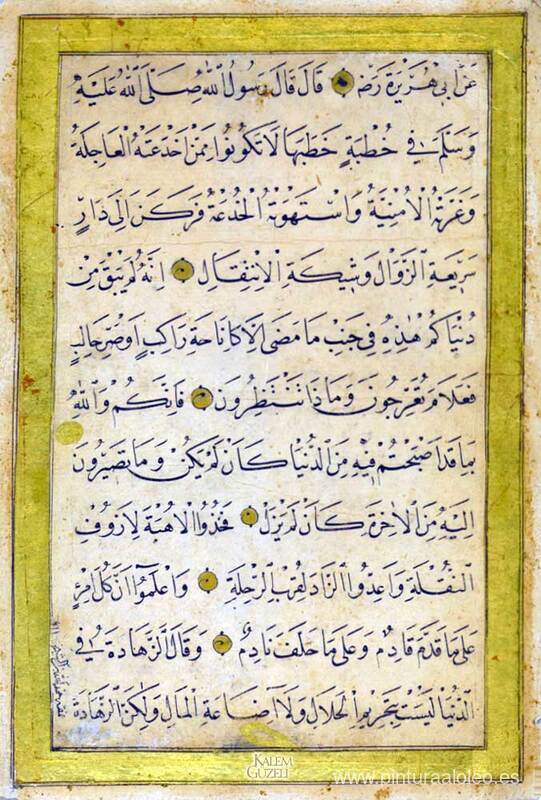 عَنْ اَبِي هُرَيْرَةَ رَضِ قَالَ قَالَ رَسُولُ اللّٰهِ صَلَّى اللّٰهُ عَلَيْهِ
وَسَلَّمَ فِي خُطْبَةٍ خَطَبَهَا لَا تَكُونُوا مِمَّنْ اخْدَعَتْهُ الْعَاجِلَةُ
وَغَرَّتْهُ الْاُمْنِيَّةُ وَاسْتَهْوَتْهُ الْخُدْعَةُ فَرَكَنَ اِلَى دَارٍ
سَرِيعَةِ الزَّوَالِ وَشِيكَةِ الْاِنْتِقَالِ اِنَّهُ لَمْ يَبْقَ مِنْ
دُنْيَاكُمْ هٰذِهِ فِي جَنْبِ مَا مَضَى اِلَّا كَاِنَاخَةِ رَاكِبٍ اَوْ صَرِّ حَالِبٍ
فَعَلَامَ تَعْرُجُونَ وَمَاذَا تَنْتَظِرُونَ فَاِنَّكُمْ وَاللّٰهُ
بِمَا قَدْ اَصْبَحْتُمْ فِيهِ مِنَ الدُّنْيَا كَاَنْ لَمْ يَكُنْ وَمَا تَصِيرُونَ
اِلَيْهِ مِنَ الْاٰخِرَةِ كَاَنْ لَمْ يَزَلْ فَخُذُوا الْاُهْبَةَ لِاَزُوفِ
النَّقْلَةِ وَاَعِدُّوا الزَّادَ لِقُرْبِ الرِّحْلَةِ وَاعْلَمُوا اَنَّ كُلَّ امْرِئٍ
عَلَى مَا قَدَّمَ قَادِمٌ وَعَلَى مَا خَلَفَ نَادِمٌ وَقَالَ الزَّهَادَةُ فِي
الدُّنْيَا لَيْسَتْ بِتَحْرِيمِ الْحَلَالِ وَلَا اِضَاعَةِ الْمَالِ وَلٰكِنَّ الزَّهَادَةَ
KALEM GÜZELİ
www.pinturaaloleo.es